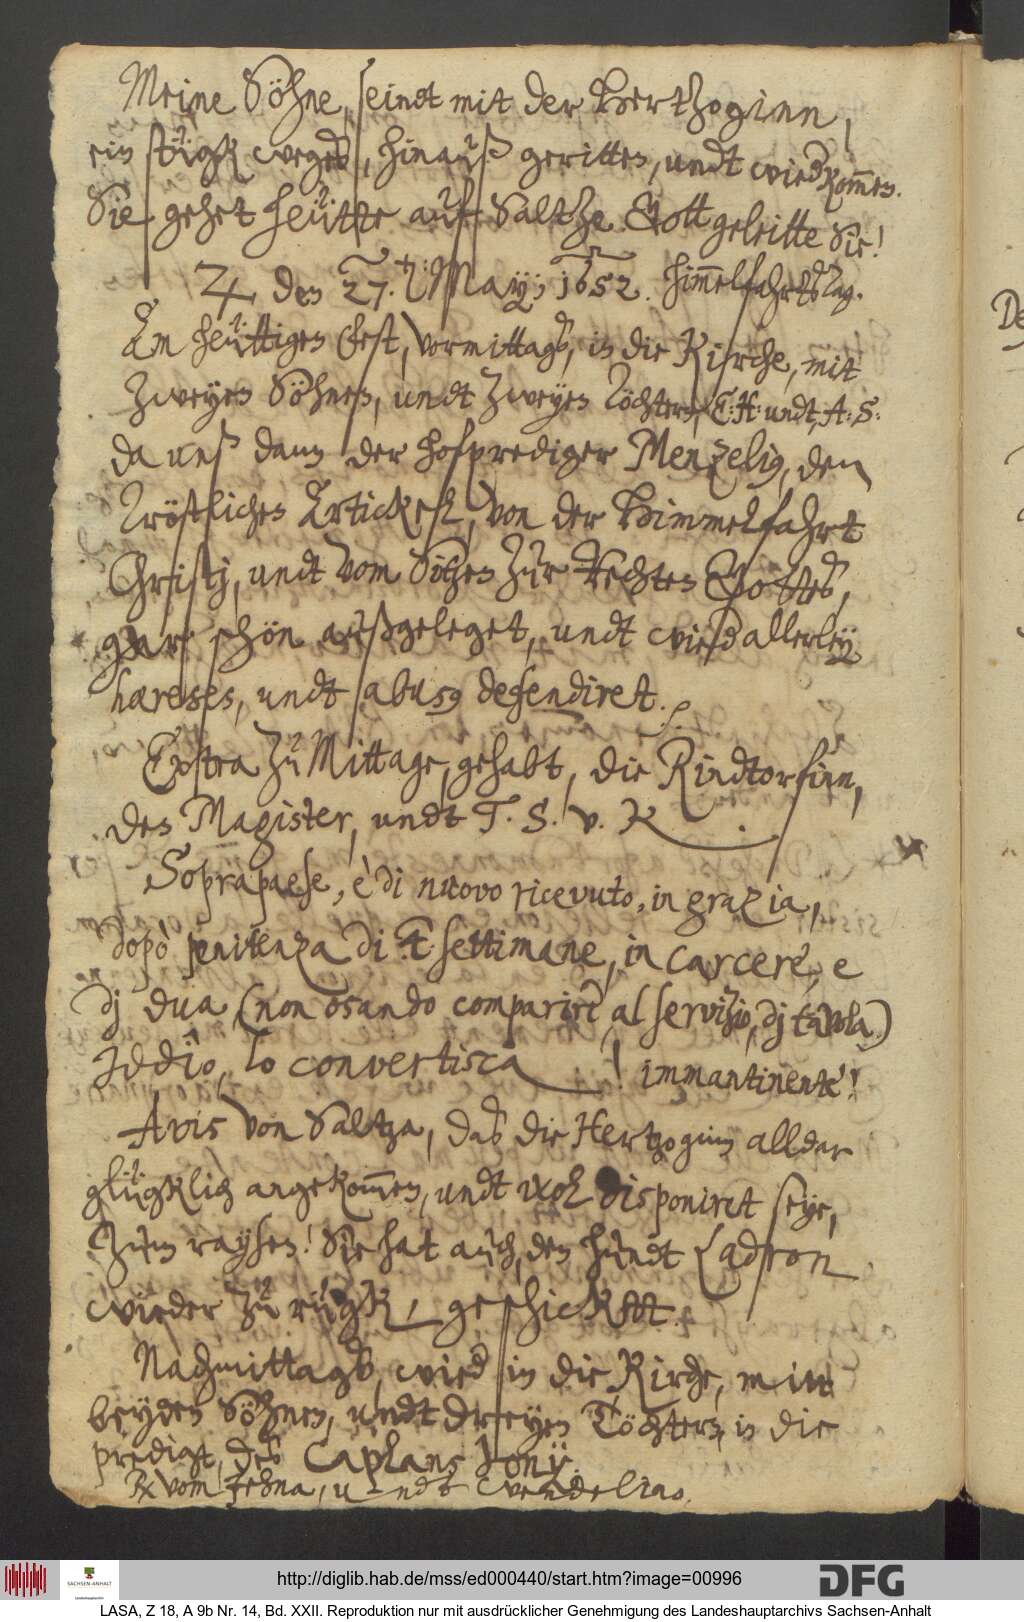 Meine Söhne, seindt mit der Hertzoginn,
ein stügk weges, hinauß geritten, undt wied kom̄en.
Sie gehet heütte auf Saltza. Gott geleitte Sie!
♃ den 27. May: 1652. Him̄elfahrts Tag.
Am heüttigen Fest, vormittags, in die Kirche, mit
zweyen Söhnen, undt zweyen Töchtern, E: H: undt A: S:
da unß dann der hofprediger Menzelig, den
Tröstlichen Artickel, von der Himmelfahrt
Christj, undt vom Sitzen zur Rechten Gottes,
gar schön außgeleget, undt wied allerley
hæreses, undt abusg defendiret.
Extra zu Mittage, gehabt, die Rindtorfinn,
den Magister, undt T. S. v. K.
Soprapaese, è di nuovo ricevuto, in grazia,
dopò penitenza di settimane, in carcere, e
dj dua, (non osando comparire, al servizio, dj tavola)
Iddîo, lo convertisca! immantinente!
Avis von Saltza, das die Hertzoginn alldar
glügklich angekom̄en, undt wol disponiret seye,
zum raysen! Sie hat auch, den hundt Ladron
wieder zu rügk, geschicktt.
Nachmittags, wied in die Kirche, mitt
beyden Söhnen, undt dreyen Töchtern, in die
predigt, des Caplans Jonij.
Rx vom Jehna, undt Wendelino.
http://diglib.hab.de/mss/ed000440/start.htm?image=00996
SACHSEN-ANHALT
Landeshauptarchiv
DFG
LASA, Z 18, A 9b Nr. 14, Bd. XXII. Reproduktion nur mit ausdrücklicher Genehmigung des Landeshauptarchivs Sachsen-Anhalt